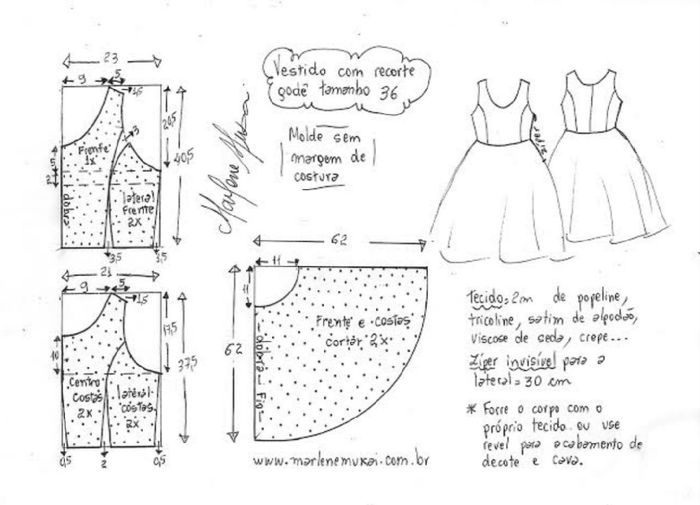 Vestido com recorte
godê tamanho 36
Molde sem
margem de
costura
Marlene Mukai
23
9
5
1,5
3
20,5
40,5
5
2
Frente
1x
dobra
lateral
Frente
2x
3,5
3,5
21
9
5
1,5
17,5
37,5
10
Centro
Costas
2x
lateral
costas
2x
0,5
2
0,5
62
11
11
62
Frente e costas
cortar 2x
dobra - Fio
www.marlenemukai.com.br
zíper
Tecido: 2m de popeline,
tricoline, satim de algodão,
viscose de seda, crepe...
Zíper invisível para a
lateral = 30 cm
* Forre o corpo com o
próprio tecido ou use
revel para acabamento de
decote e cava.